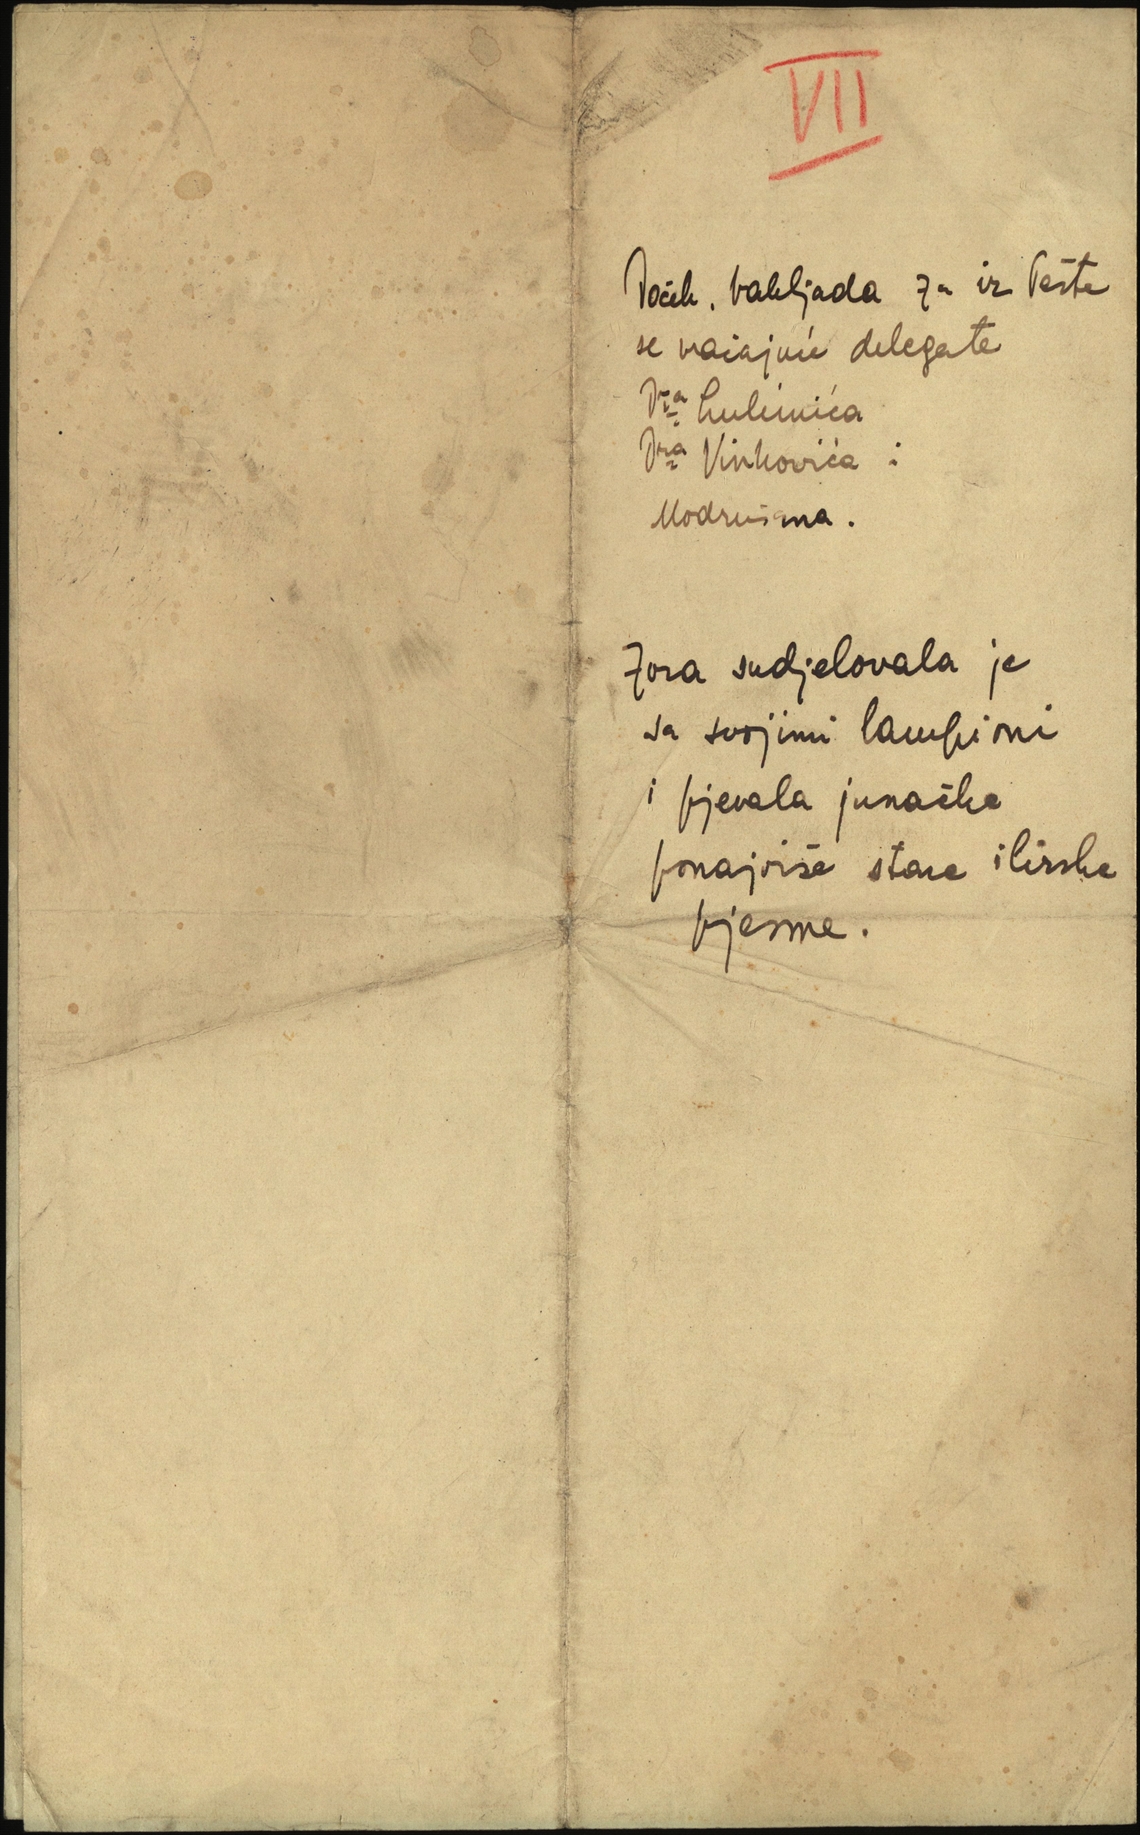 VII
Doček, bakljada za iz Pešte
se vraćajuće delegate
Dra Lukinića
Dra Vinkovića i
Modrušana.
Zora sudjelovala je
sa svojimi lampioni
i pjevala junačke
ponajviše stare ilirske
pjesme.